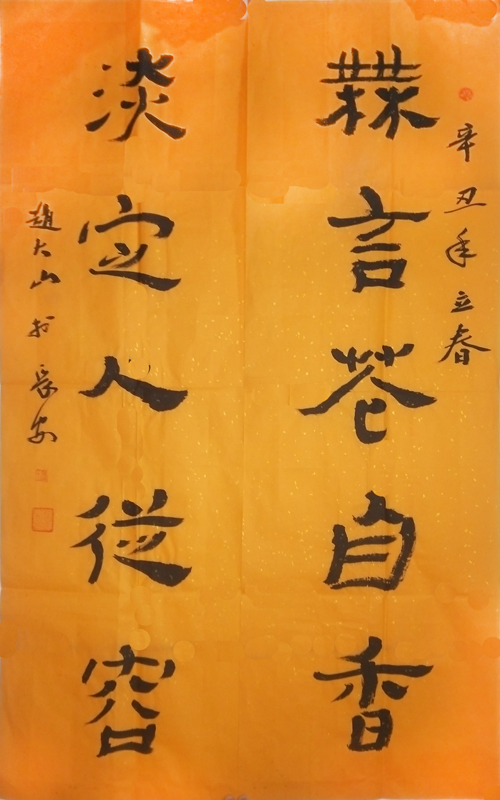 辛丑年立春
無言花自香
淡定人從容
趙大山於長安